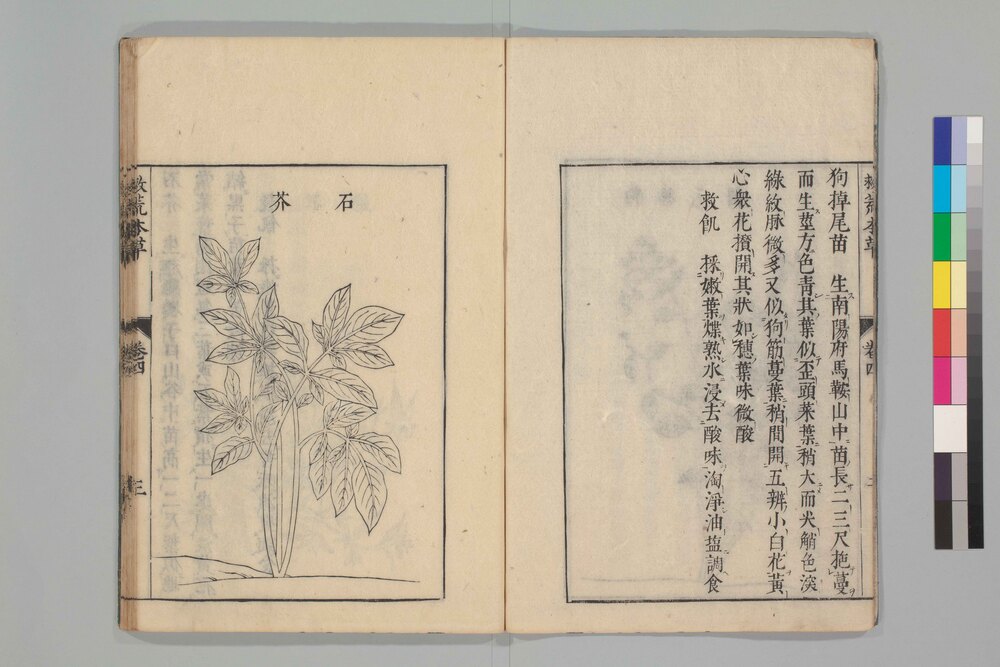 救荒本草
卷四
二
狗掉尾苗　生南陽府馬鞍山中苗長二三尺拖蔓
而生莖方色青其葉似歪頭菜葉稍大而尖艄色深
綠紋脉微多又似狗筋蔓葉稍間開五瓣小白花黃
心衆花攅開其狀如穗葉味微酸
救飢　採嫩葉煠熟水浸去酸味淘淨油塩調食
石芥
救荒本草
卷四
三